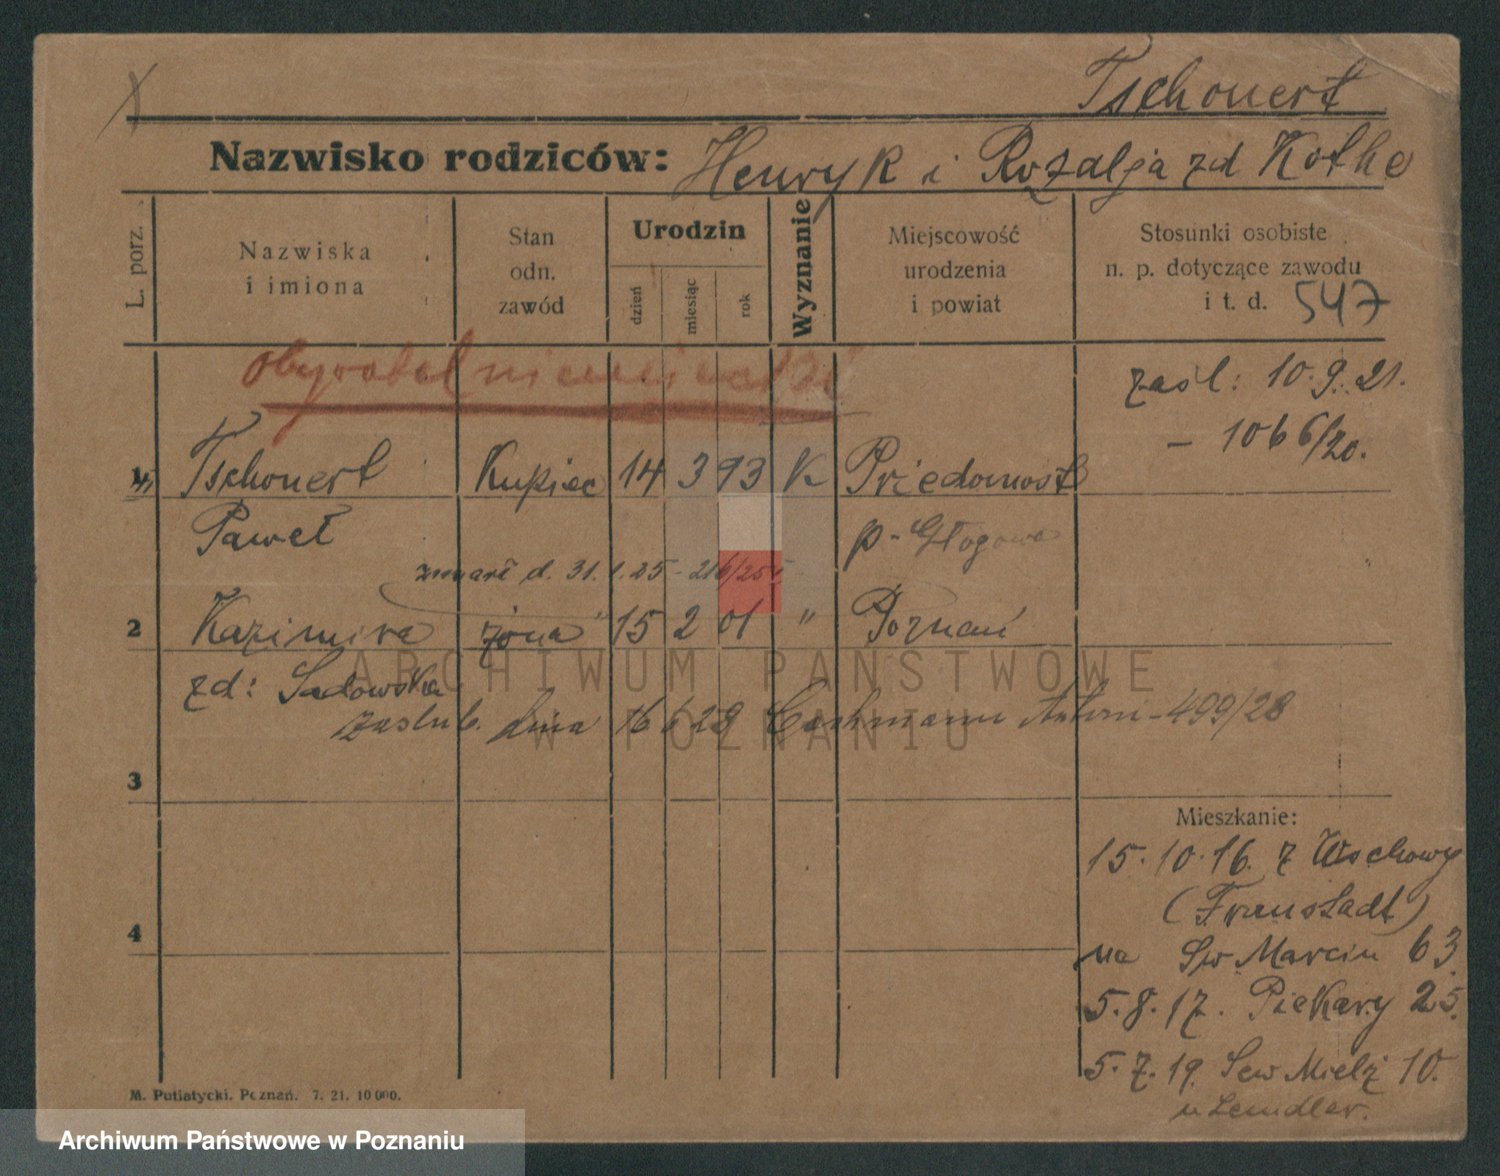 Tschouert
Nazwisko rodziców: Henryk i Rozalja zd Kothe
L. porz.
Nazwiska i imiona
Stan odn. zawód
Urodzin
dzień
miesiąc
rok
Wyznanie
Miejscowość urodzenia i powiat
Stosunki osobiste n. p. dotyczące zawodu i t. d. 547
obywatel niemiecki
zaśl: 10.9.21.
- 1066/20.
1, Tschouert Kupiec 14 3 93 K Priedomost
Paweł p. Głogowa
zmarł d. 31.1.25 - 216/25
2 Kazimira żona 15 2 01 " Poznań
zd: Sadowska
zaślub. dnia 16 6 28 Antoni - 499/28
3
4
Mieszkanie:
15.10.16. z Wschowy
(Fraustadt)
na Św Marcin 63.
5.8.17. Piekary 25.
5.7.19. Sew Mielż 10.
M. Putiatycki. Poznań. 7. 21. 10 000.
ARCHIWUM PAŃSTWOWE
W POZNANIU
Archiwum Państwowe w Poznaniu